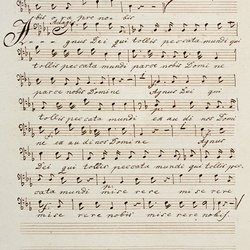 bis ora pro nobis
Agnus Dei qui tollis peccata mundi qui
tollis peccata mundi parce nobis Domine
parce nobis Domine Agnus Dei qui
tollis peccata mundi ex au di nos Domi
ne ex au di nos Domine Agnus
Dei qui tollis peccata mundi qui tollis pec
cata mundi mise rere mise rere
mise rere nobis mise rere nobis.